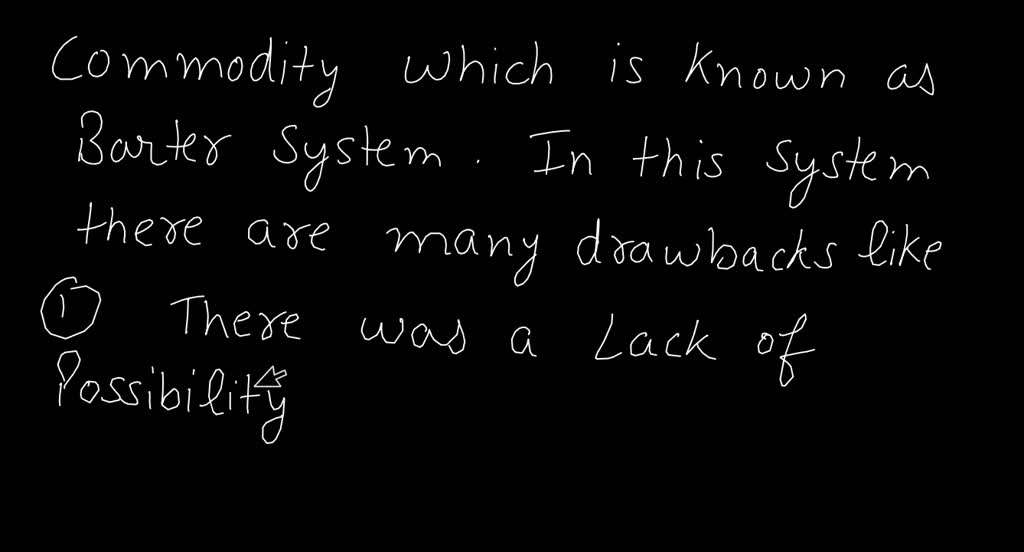 Commodity which is known as
Barter System. In this system
there are many drawbacks like
① There was a Lack of
Possibility